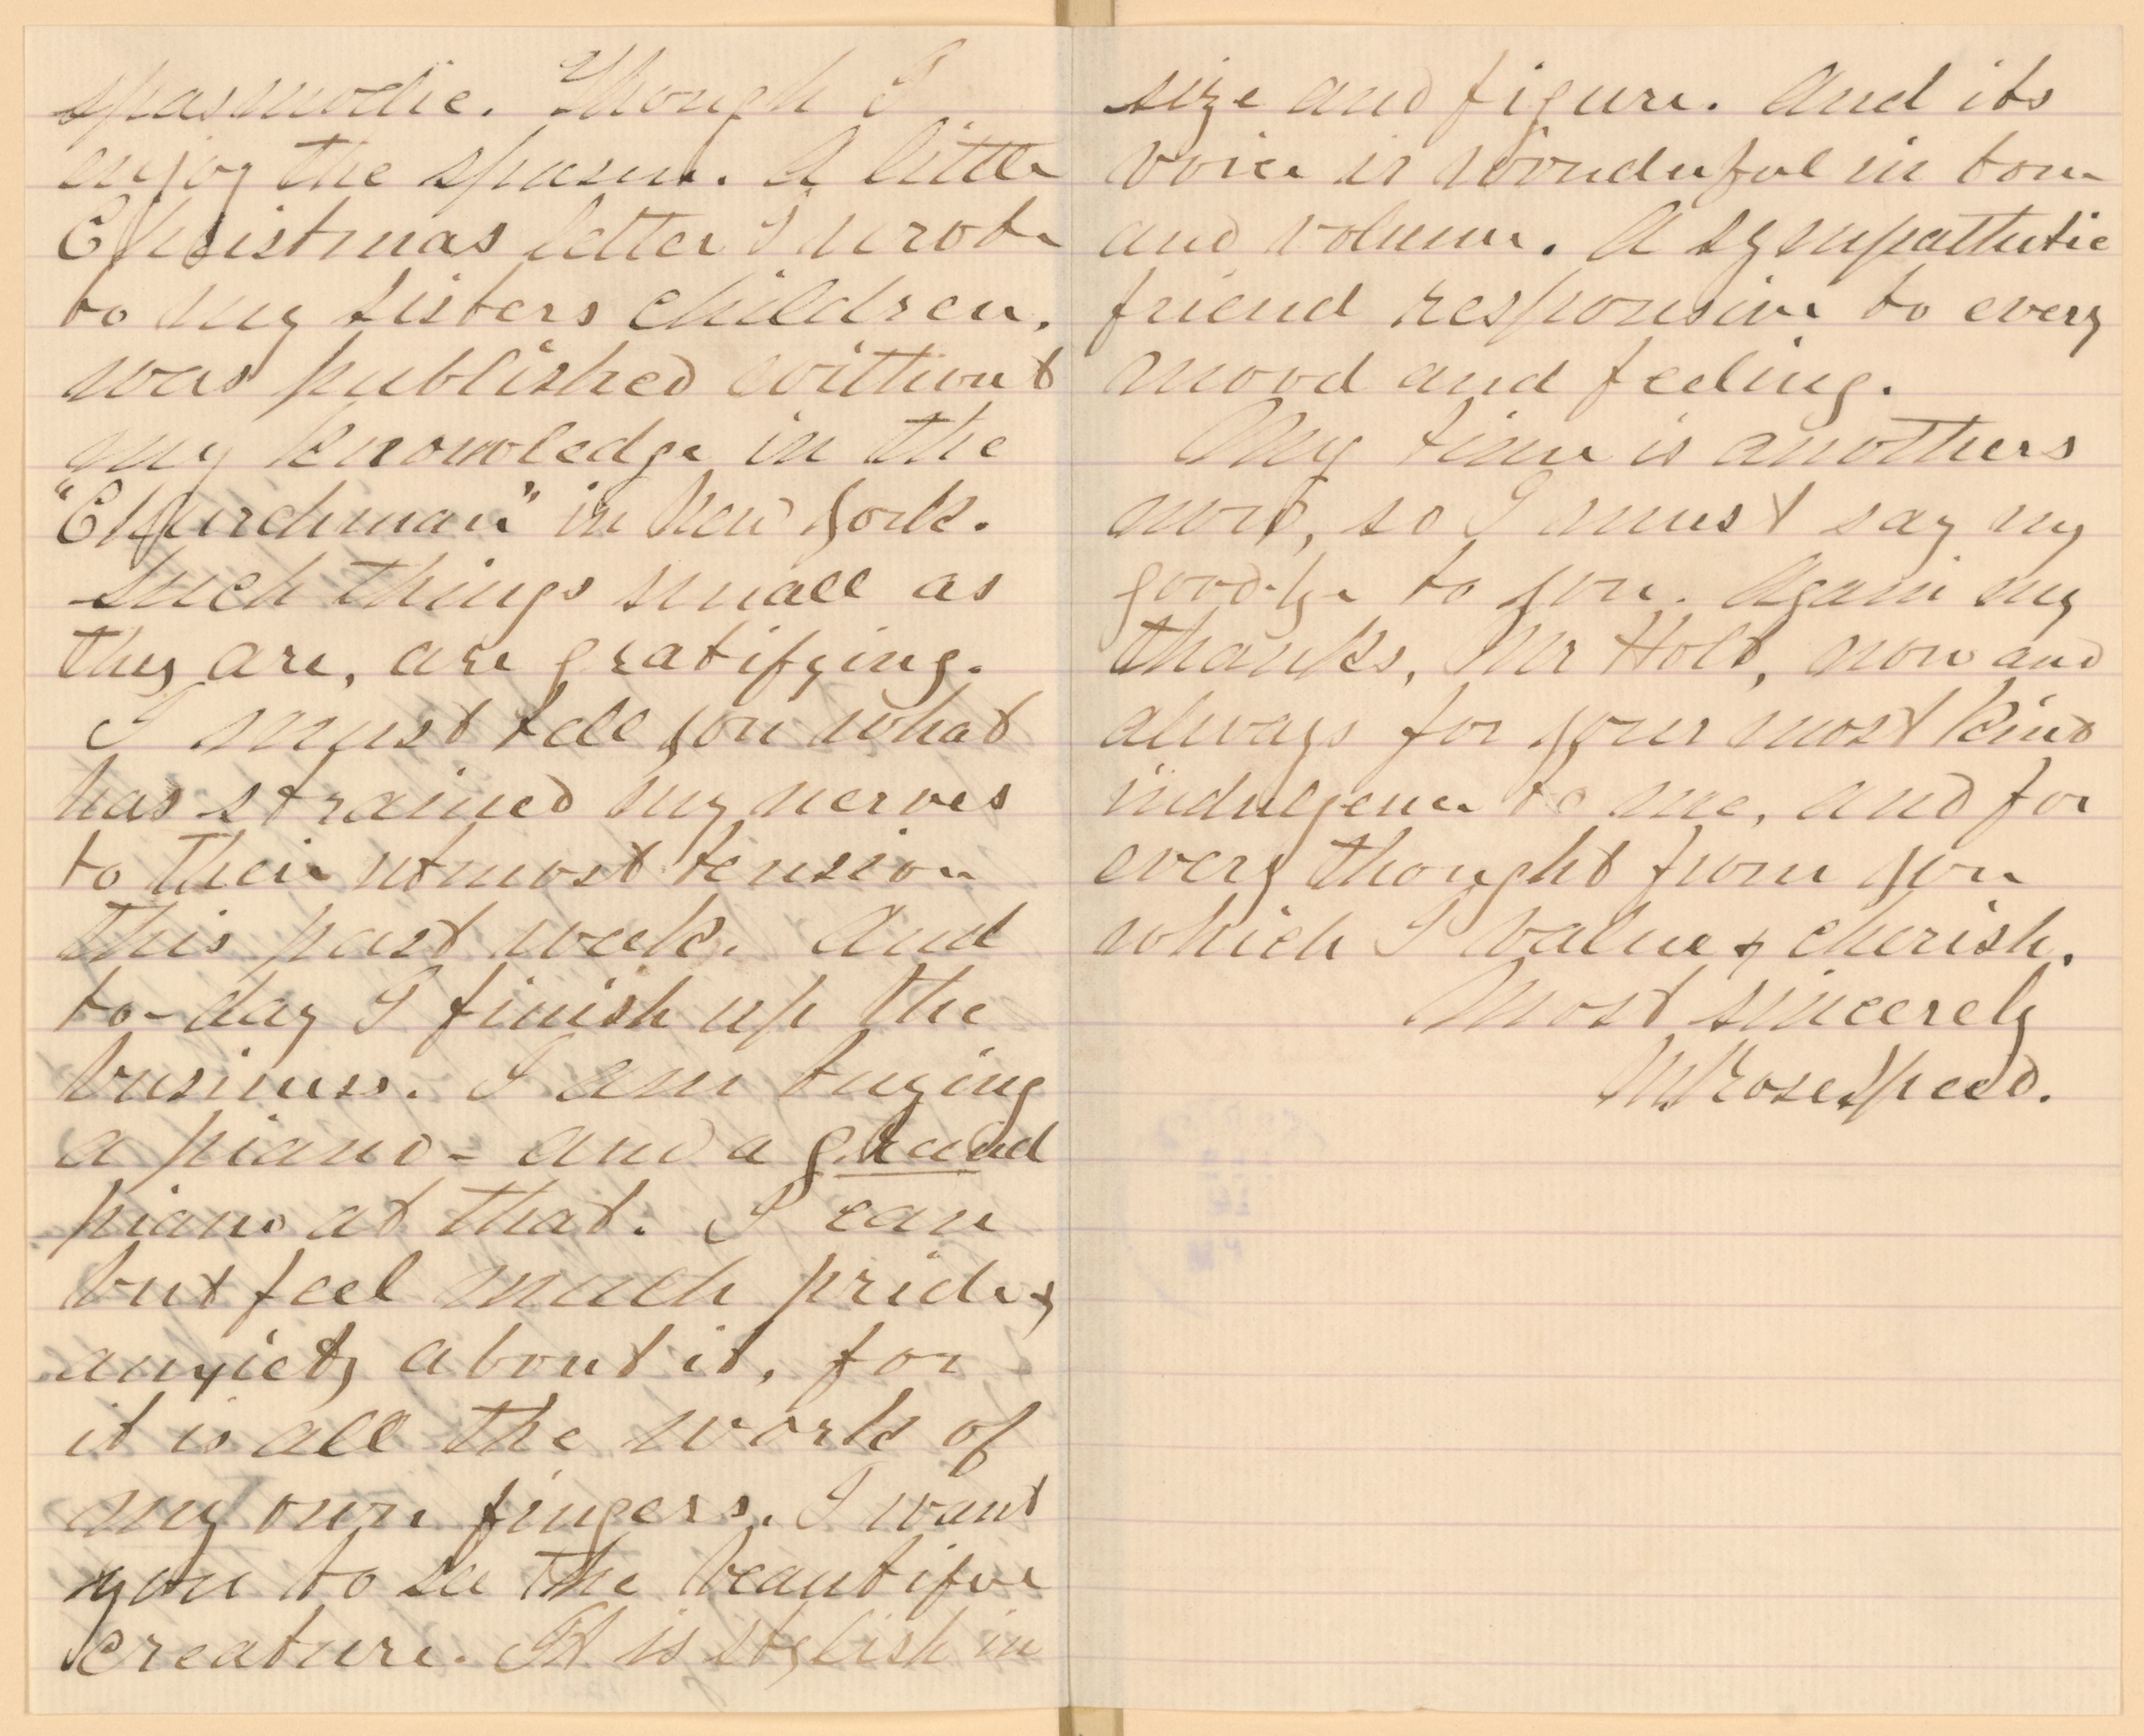 spasmodic. Though I
enjoy the spasm. A little
Christmas letter I wrote
to my sisters children,
was published without
my knowledge in the
"Churchman" in New York.
Such things small as
they are, are gratifying.
I must tell you what
has strained my nerves
to their utmost tension
this past week. And
to-day I finish up the
business. I am buying
a piano - and a grand
piano at that. I can
but feel much pride &
anxiety about it, for
it is all the work of
my own fingers. I want
you to see the beautiful
creature. It is stylish in
size and figure. And its
voice is wonderful in tone
and volume. A sympathetic
friend responsive to every
mood and feeling.
My time is anothers
now, so I must say my
good-bye to you. Again my
thanks, Mr Holt, now and
always for your most kind
indulgence to me, and for
every thought from you
which I value & cherish.
Most sincerely
M Rose Speed.